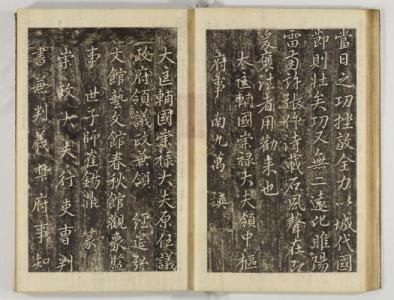 當日之功挫敵全力以城代國
節則壯矣功又無二遠比睢陽
雷南詩載石風聲在
襃往者用勸來也
大匡輔國崇祿大夫領中樞
府事南九萬撰
大匡輔國崇祿大夫原任議
政府領議政兼領 經筵弘
文館藝文館春秋館觀象監
事 世子師崔錫鼎 篆
崇政大夫行吏曹判
書兼判義禁府事知